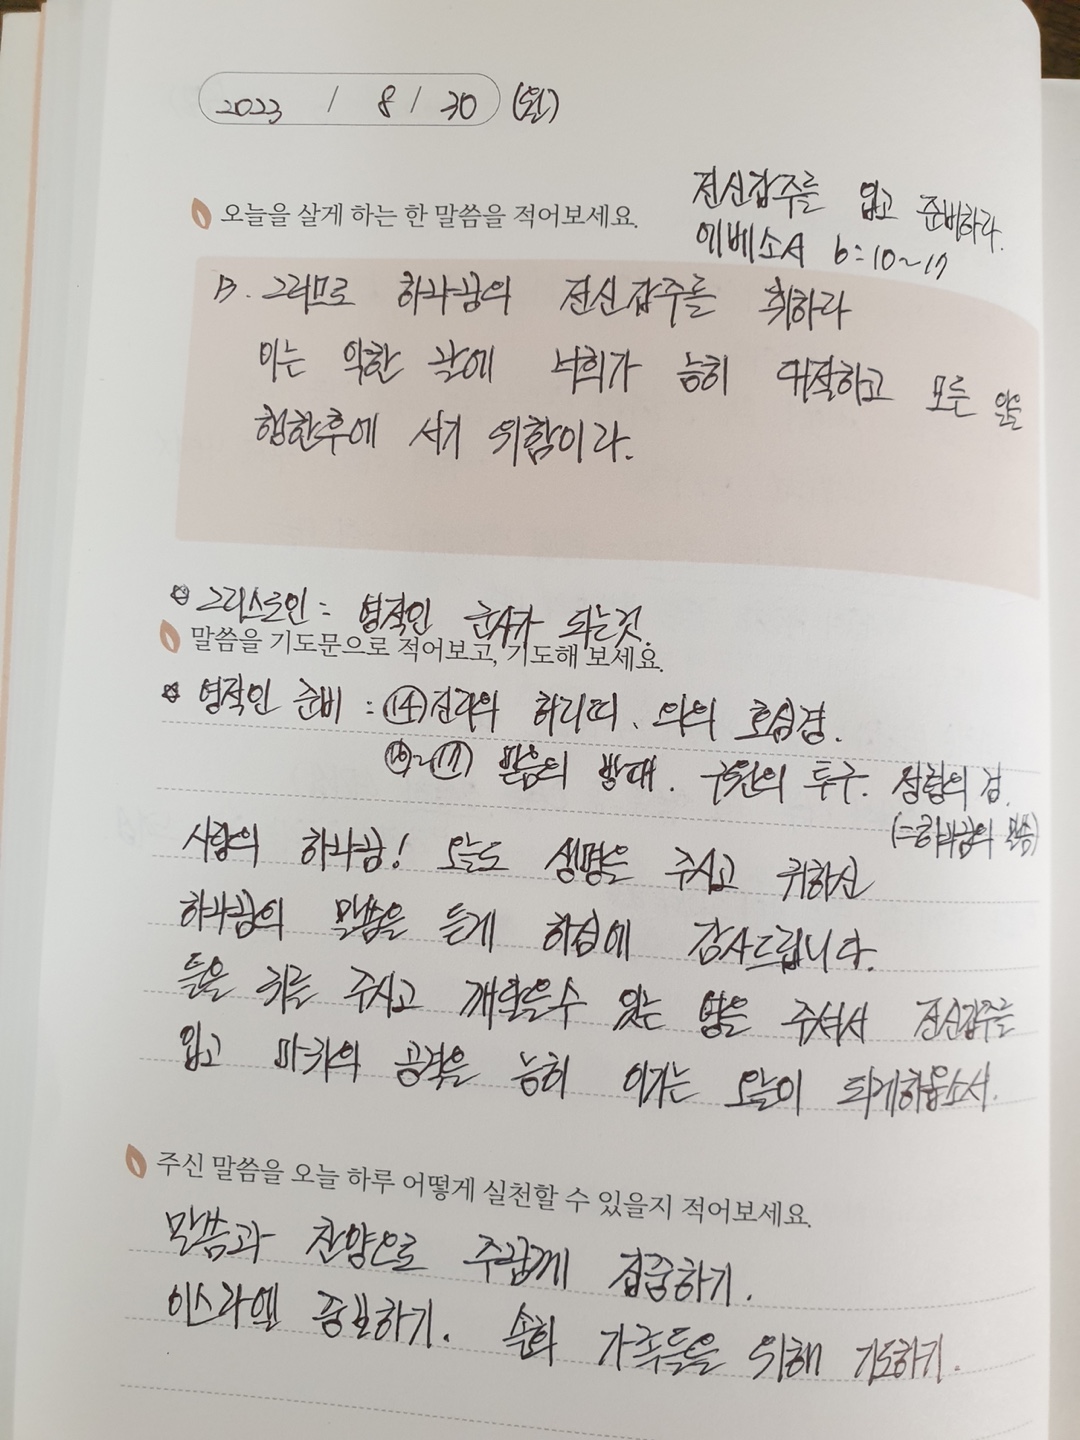 2023 / 8 / 30 (월)
전신갑주를 입고 준비하라.
오늘을 살게 하는 한 말씀을 적어보세요.
에베소서 6:10~17
13. 그러므로 하나님의 전신갑주를 취하라
이는 악한 날에 너희가 능히 대적하고 모든 일을
행한후에 서기 위함이라.
그리스도인 = 영적인 군사가 되는것.
말씀을 기도문으로 적어보고, 기도해 보세요.
영적인 준비 : ⑭진리의 허리띠, 의의 호심경.
⑯~⑰ 믿음의 방패. 구원의 투구. 성령의 검.
(=하나님의 말씀)
사랑의 하나님! 오늘도 생명을 주시고 귀하신
하나님의 말씀을 듣게 하심에 감사드립니다.
들을 귀를 주시고 깨달을수 있는 맘을 주셔서 전신갑주를
입고 마귀의 공격을 능히 이기는 오늘이 되게하옵소서.
주신 말씀을 오늘 하루 어떻게 실천할 수 있을지 적어보세요.
말씀과 찬양으로 주님께 집중하기.
이스라엘 중보하기. 속회 가족들을 위해 기도하기.